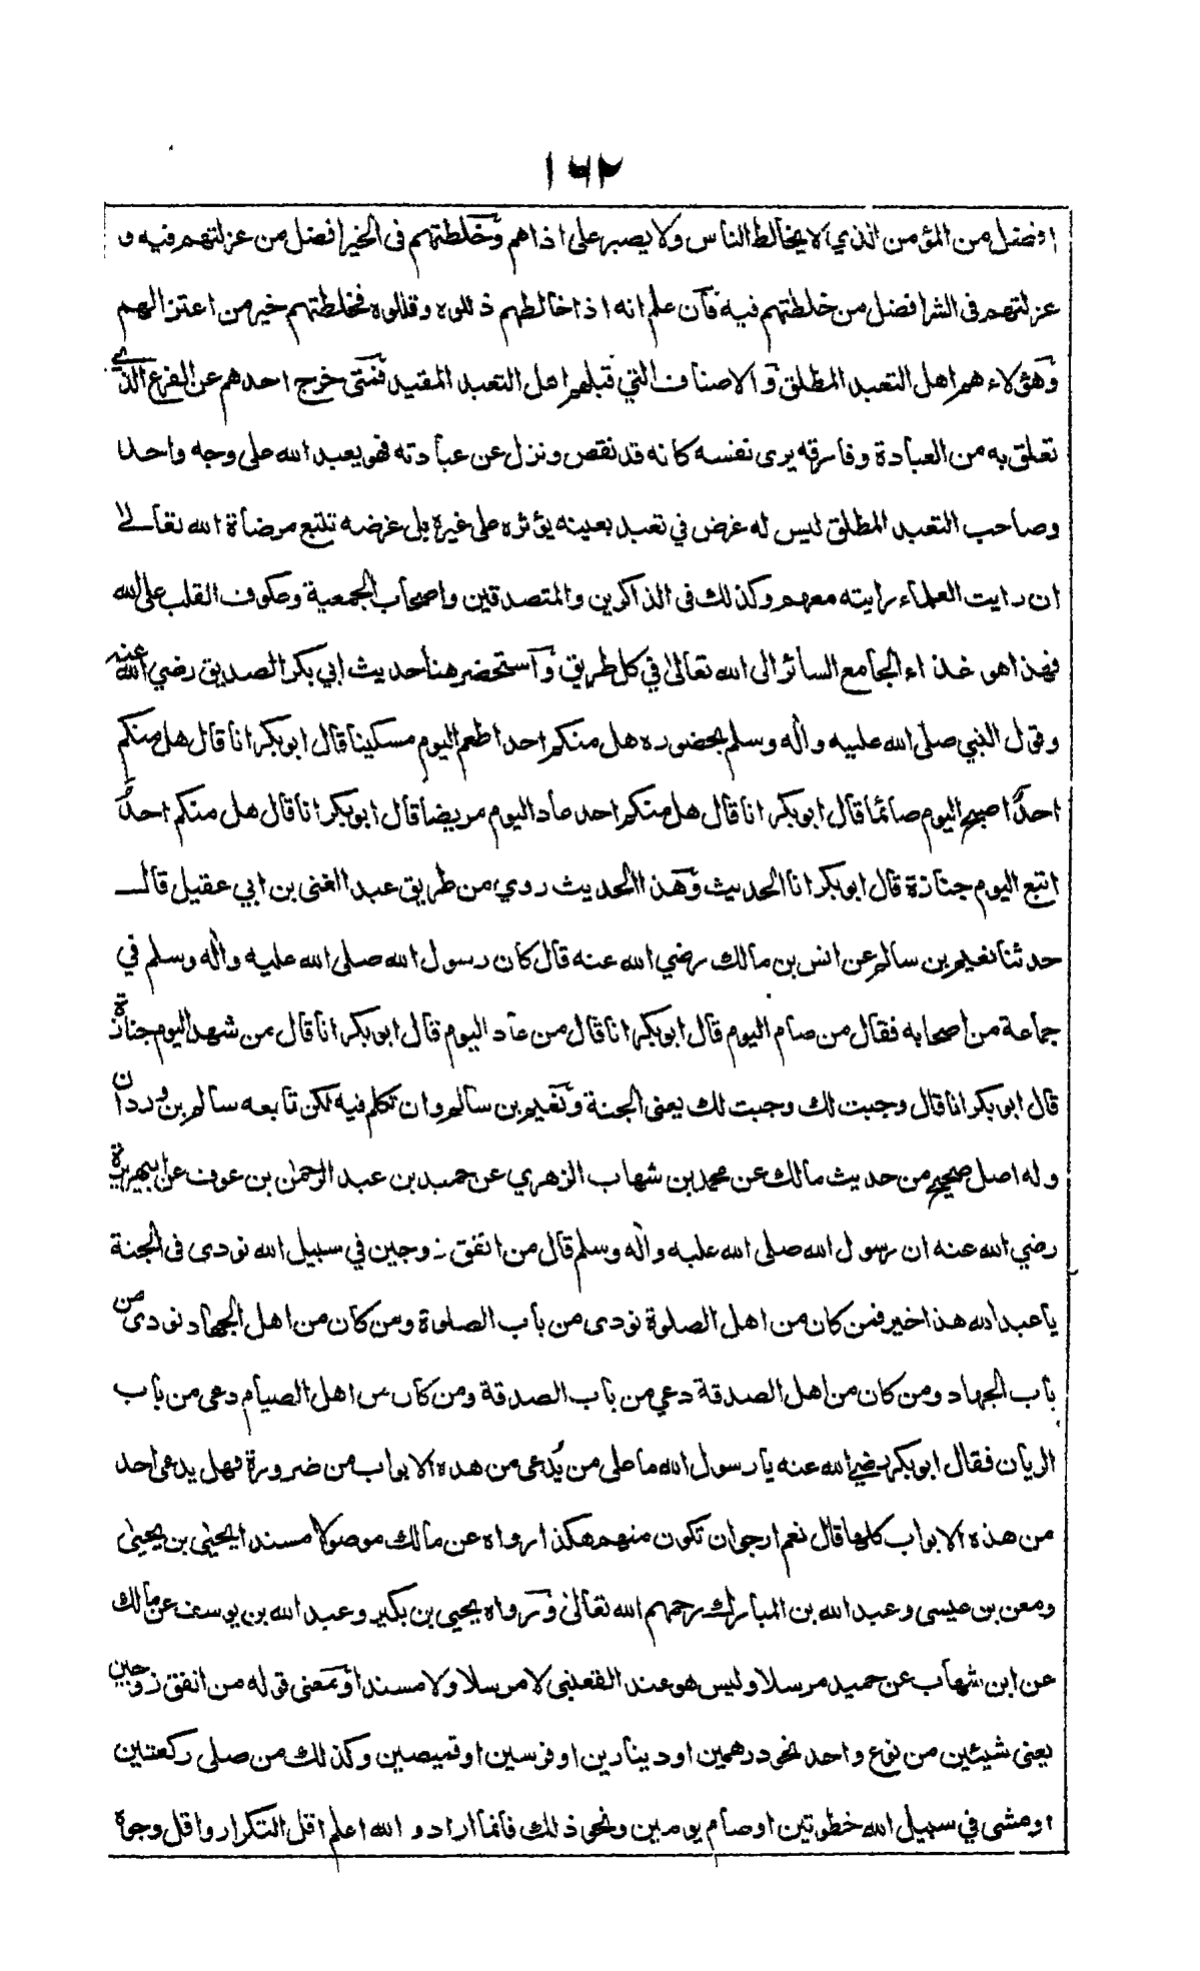 ١٦٢
افضل من المؤمن الذي لا يخالط الناس ولا يصبر على اذاهم وخلطتهم فى الخير افضل من عزلتهم فيه و
عزلتهم فى الشر افضل من خلطتهم فيه فان علم انه اذا خالطهم ذللوه وقللوه فخلطتهم خير من اعتزالهم
وهؤلاء هم اهل التعبد المطلق والاصناف التي قبلهم اهل التعبد المقيد فمتى خرج احدهم عن الفرع الذي
تعلق به من العبادة وفارقه يرى نفسه كانه قد نقص ونزل عن عبادته فهو يعبد الله على وجه واحد
وصاحب التعبد المطلق ليس له غرض في تعبد بعينه يؤثره على غيره بل غرضه تتبع مرضاة الله تعالى
ان رايت العلماء رايته معهم وكذلك فى الذاكرين والمتصدقين واصحاب الجمعية وعكوف القلب على الله
فهذا هو غذاء الجامع السائر الى الله تعالى في كل طريق واستحضر هنا حديث ابي بكر الصديق رضي الله عنه
وقول النبي صلى الله عليه واٰله وسلم بحضوره هل منكم احد اطعم اليوم مسكينا قال ابو بكر انا قال هل منكم
احدٌ اصبح اليوم صائما قال ابو بكر انا قال هل منكم احد عاد اليوم مريضا قال ابو بكر انا قال هل منكم احدٌ
اتبع اليوم جنازة قال ابو بكر انا الحديث وهذا الحديث روي من طريق عبد الغنى بن ابي عقيل قال
حدثنا نعيم بن سالم عن انس بن مالك رضي الله عنه قال كان رسول الله صلى الله عليه واٰله وسلم في
جماعة من اصحابه فقال من صام اليوم قال ابو بكر انا قال من عاد اليوم قال ابو بكر انا قال من شهد اليوم جنازة
قال ابو بكر انا قال وجبت لك وجبت لك يعنى الجنة ونعيم بن سالم وان تكلم فيه لكن تابعه سالم بن وردان
وله اصل صحيح من حديث مالك عن محمد بن شهاب الزهري عن حميد بن عبد الرحمن بن عوف عن ابيهريرة
رضي الله عنه ان رسول الله صلى الله عليه واٰله وسلم قال من انفق زوجين في سبيل الله نودى فى الجنة
يا عبد الله هذا خير فمن كان من اهل الصلوة نودى من باب الصلوة ومن كان من اهل الجهاد نودى من
باب الجهاد ومن كان من اهل الصدقة دعي من باب الصدقة ومن كان من اهل الصيام دعى من باب
الريان فقال ابو بكر رضي الله عنه يا رسول الله ما على من يُدعى من هذه الابواب من ضرورة فهل يدعى احد
من هذه الابواب كلها قال نعم ارجو ان تكون منهم هكذا رواه عن مالك موصولا مسندا يحيى بن يحيى
ومعن بن عيسى وعبد الله بن المبارك رحمهم الله تعالى ورواه يحيى بن بكير وعبد الله بن يوسف عن مالك
عن ابن شهاب عن حميد مرسلا وليس هو عند القعنبى لا مرسلا ولا مسندا ومعنى قوله من انفق زوجين
يعنى شيئين من نوع واحد نحو درهمين او دينارين او فرسين او قميصين وكذلك من صلى ركعتين
او مشى في سبيل الله خطوتين او صام يومين ونحو ذلك فانما اراد والله اعلم اقل التكرار واقل وجوه